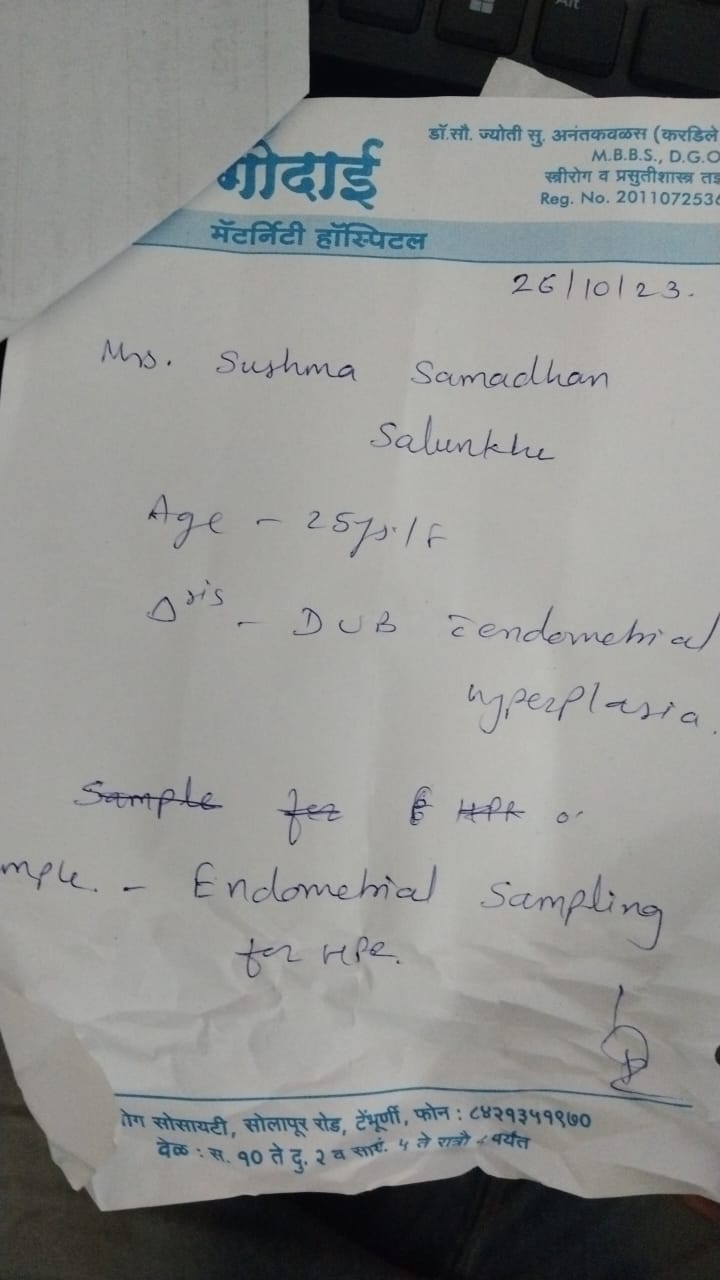 गोदाई
मॅटर्निटी हॉस्पिटल
डॉ.सौ. ज्योती सु. अनंतकवळस (करडिले
M.B.B.S., D.G.O
स्त्रीरोग व प्रसुतीशास्त्र तज्ञ
Reg. No. 2011072536
26/10/23.
Mrs. Sushma Samadhan
Salunkhe
Age - 25yrs./F
Δsis - DUB c̄ endometrial
hyperplasia.
Sample for HPR
mple. - Endometrial Sampling
for HPE.
रोग सोसायटी, सोलापूर रोड, टेंभूर्णी, फोन : ८४२१३५१९७०
वेळ : स. १० ते दु. २ व सायं. ५ ते रात्रौ ८ वर्यंत
Alt